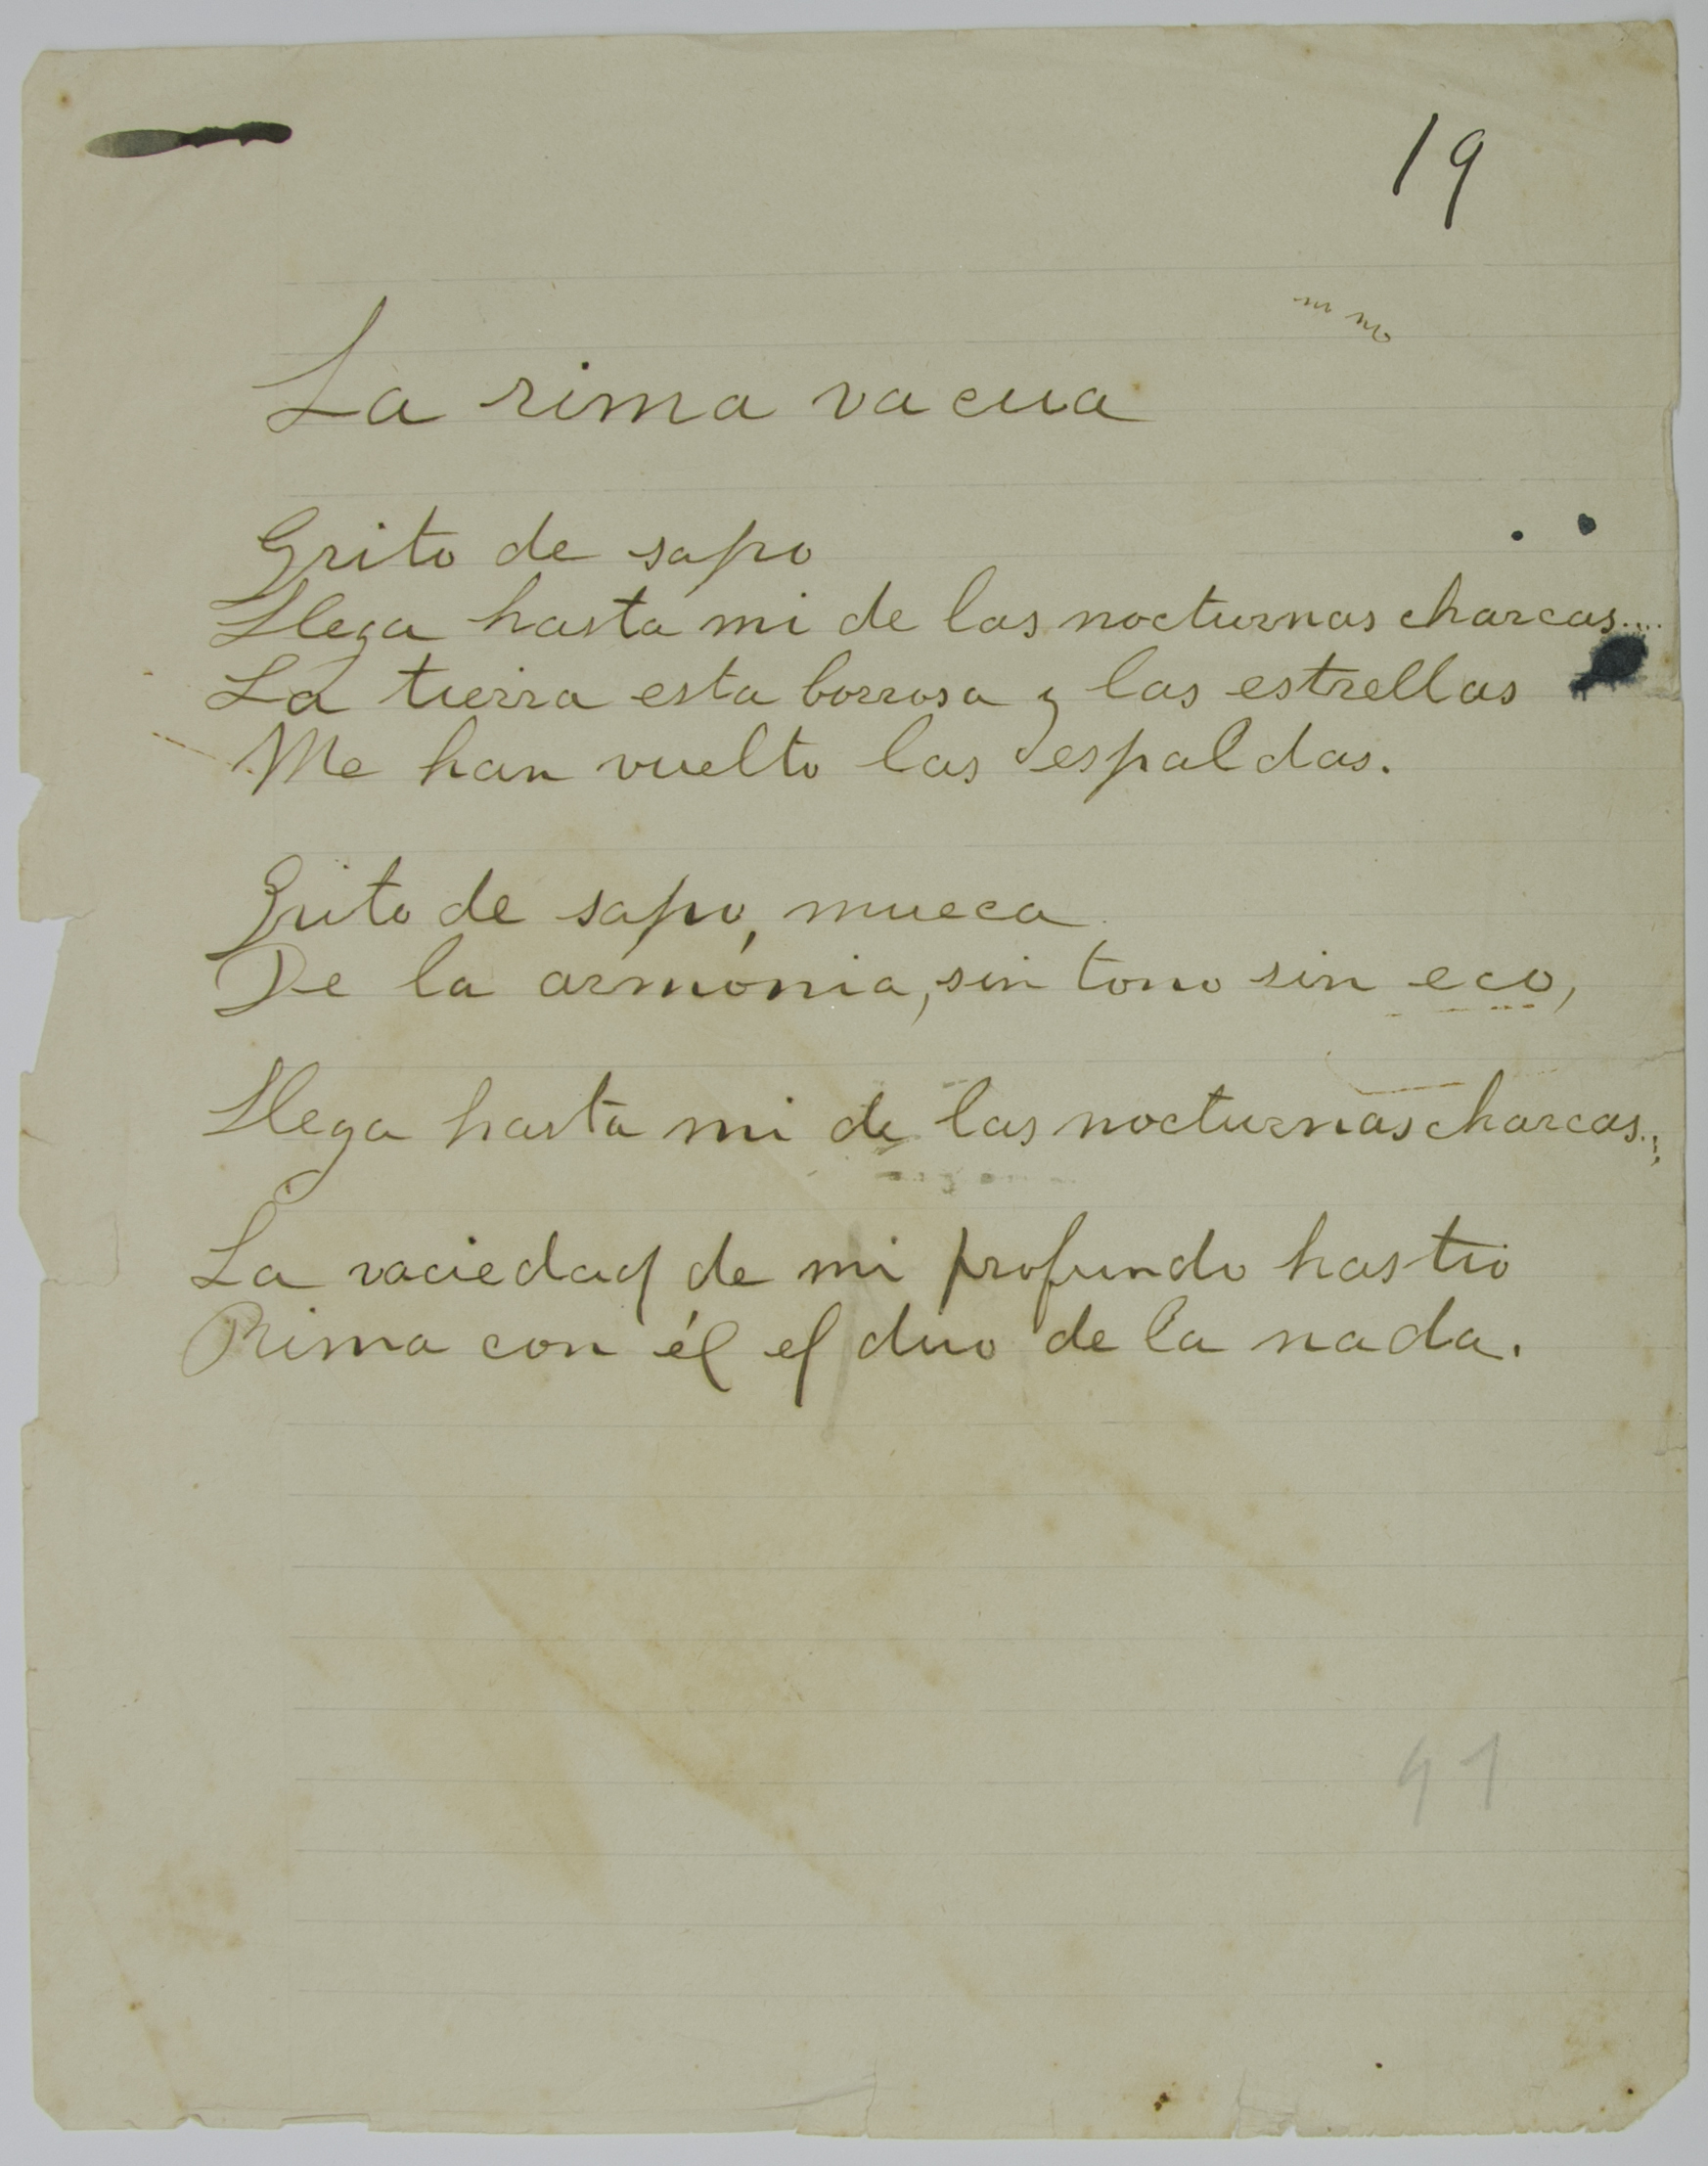 19
La rima vacua
Grito de sapo
Llega hasta mi de las nocturnas charcas....
La tierra esta borrosa y las estrellas
Me han vuelto las espaldas.
Grito de sapo, mueca
De la armónia, sin tono sin eco,
Llega hasta mi de las nocturnas charcas...
La vaciedad de mi profundo hastio
Rima con él el duo de la nada.
41